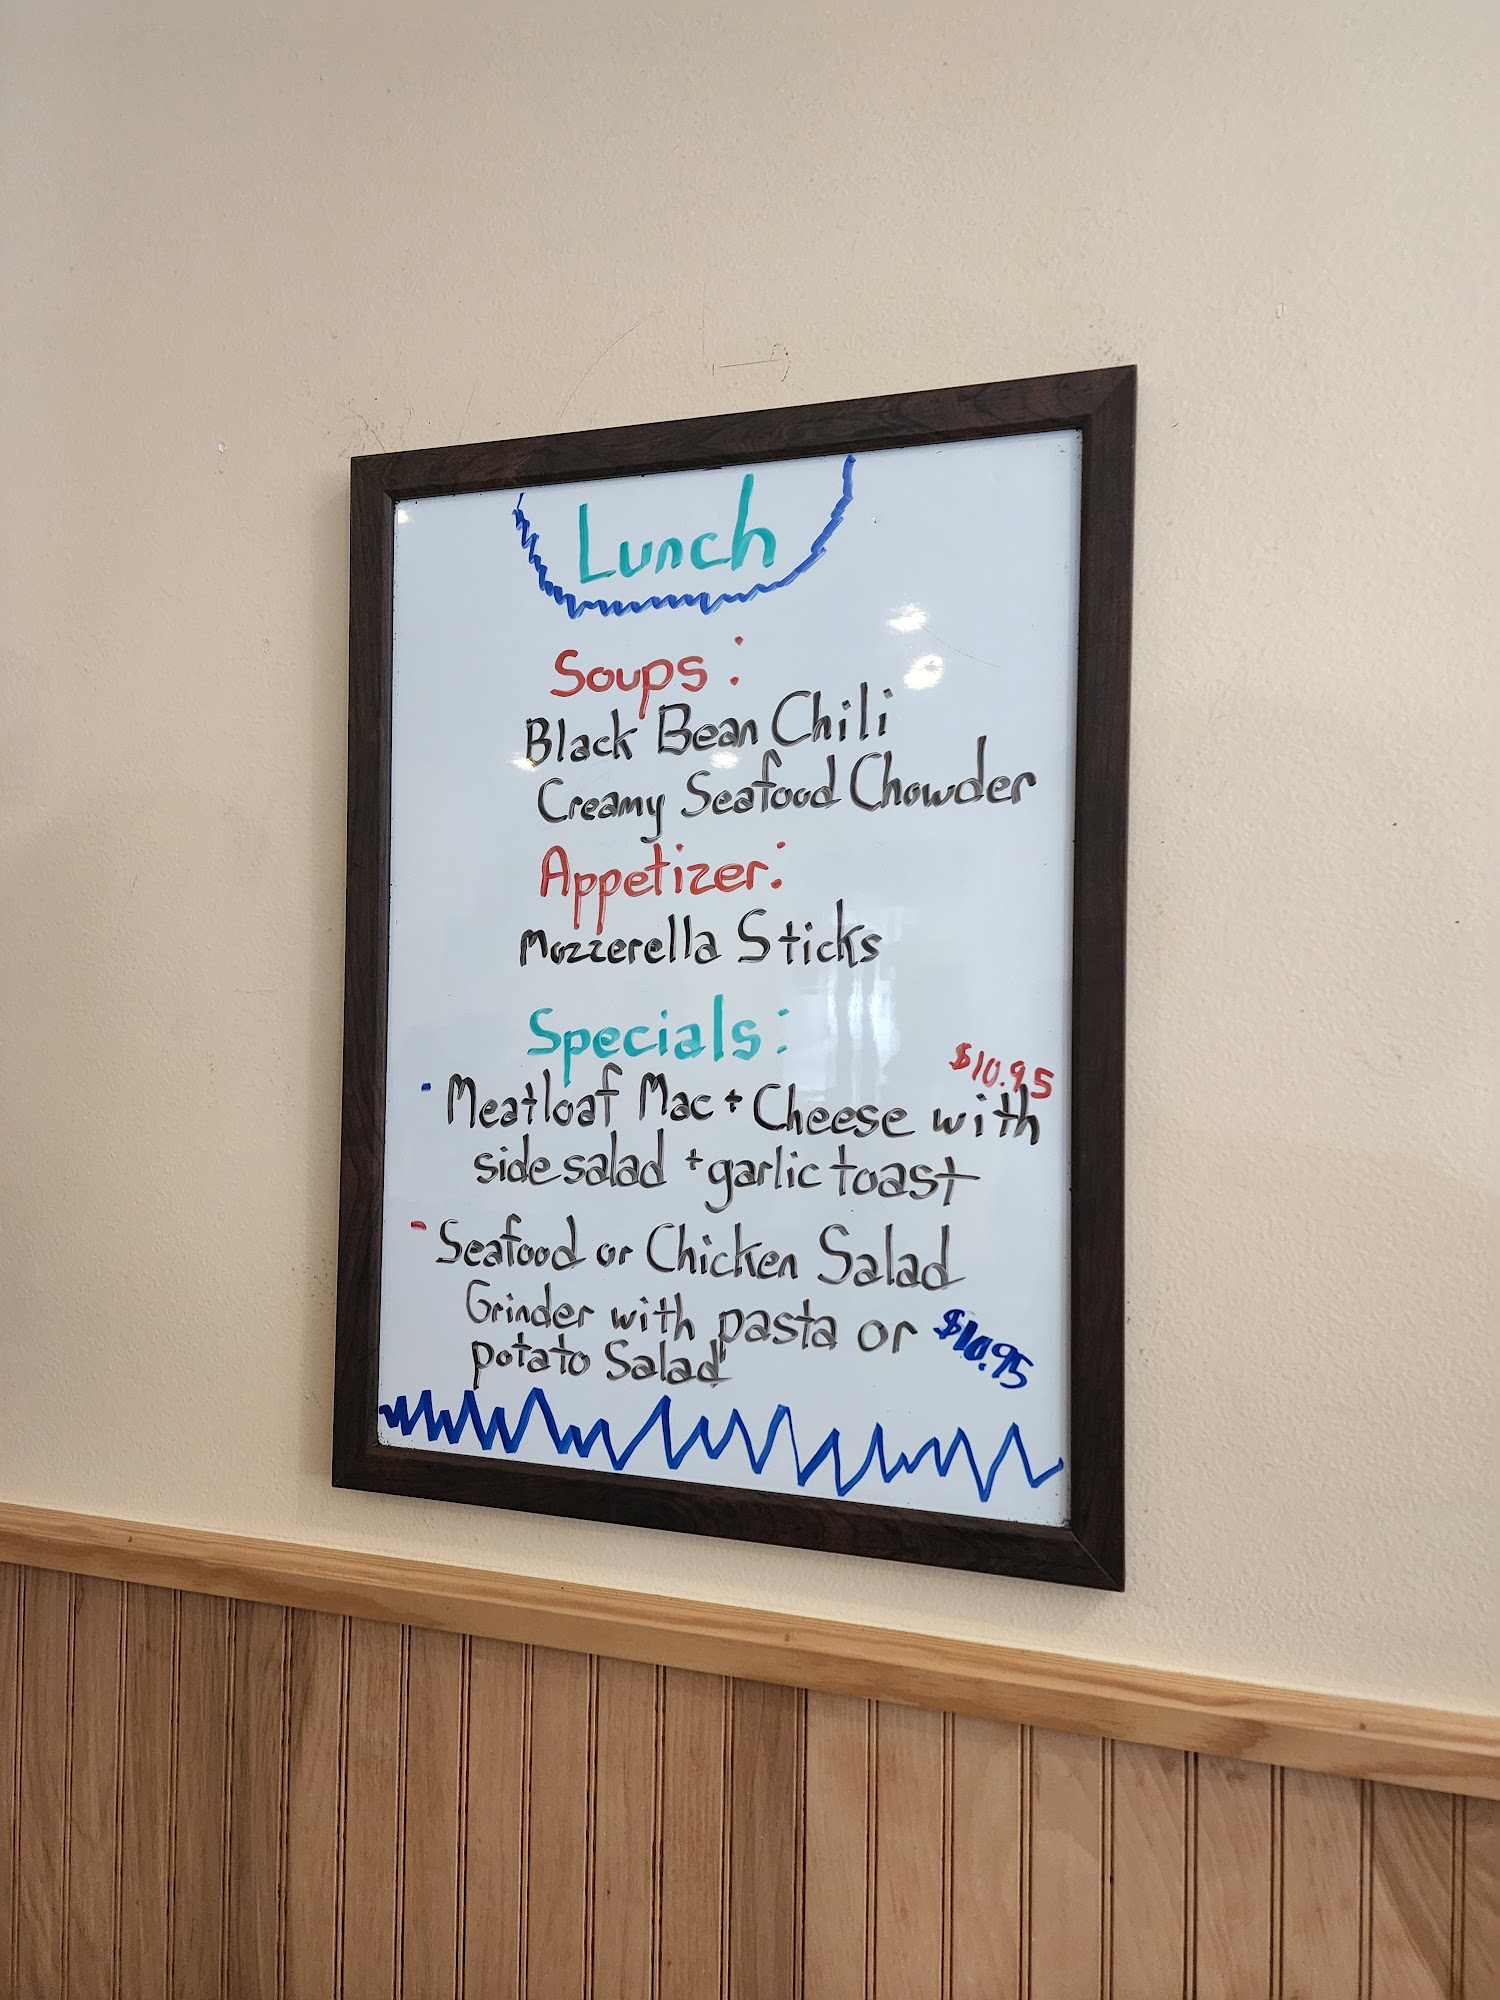 Lunch
Soups:
Black Bean Chili
Creamy Seafood Chowder
Appetizer:
Mozzerella Sticks
Specials:
$10.95
· Meatloaf Mac + Cheese with
side salad + garlic toast
- Seafood or Chicken Salad
Grinder with pasta or $10.95
potato Salad